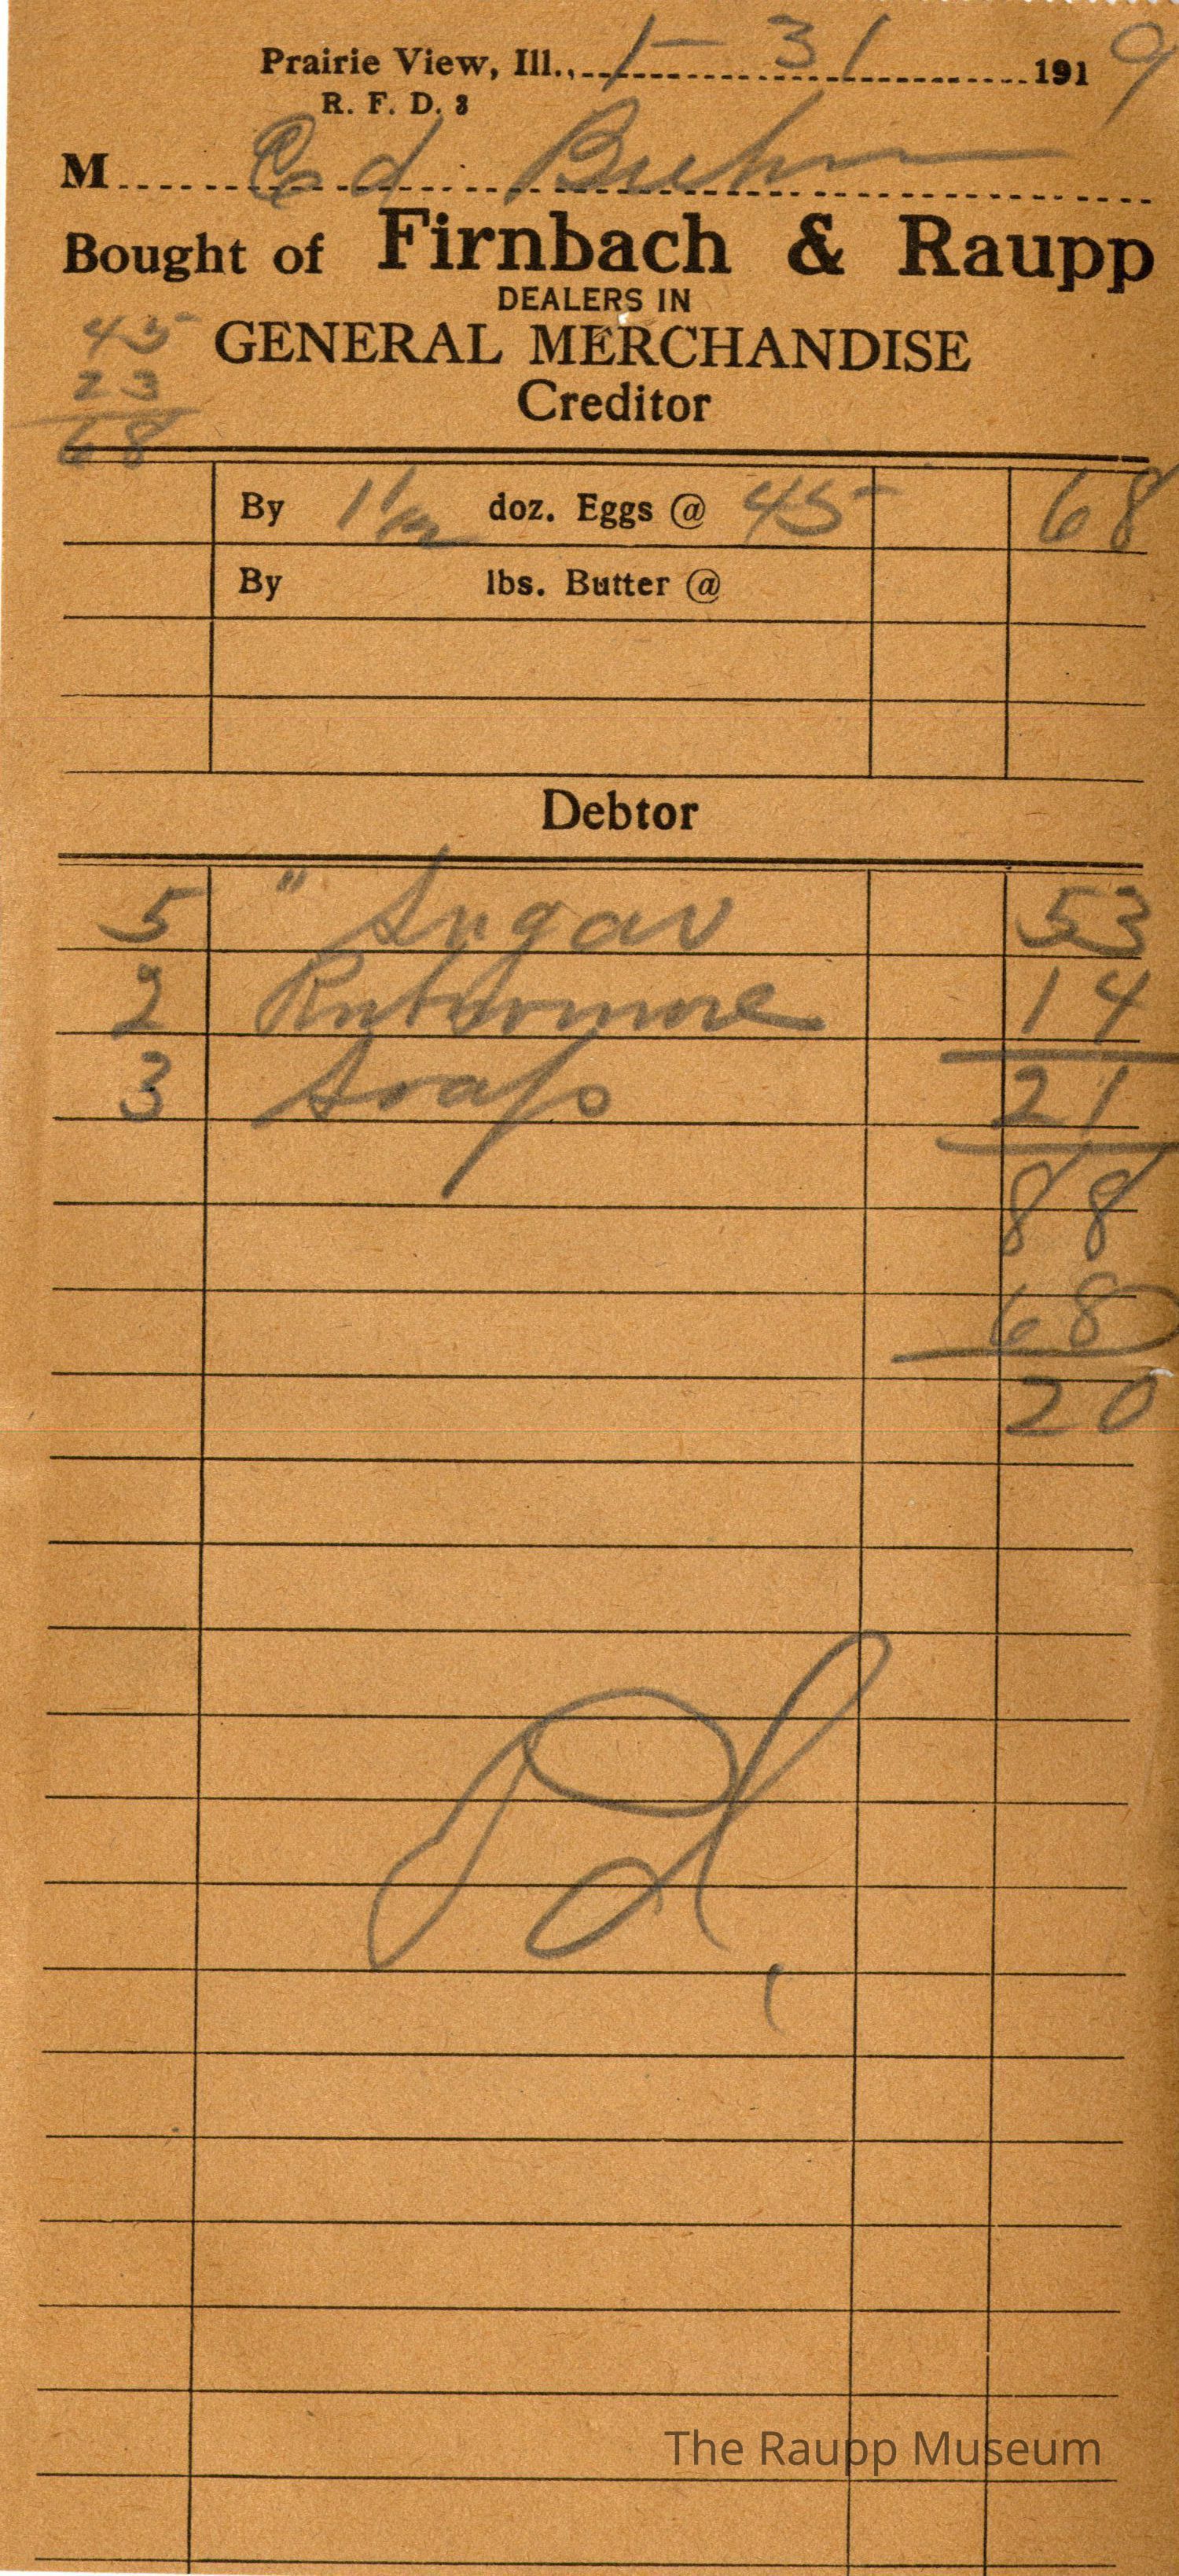 Prairie View, Ill., 1-31 1919
R. F. D. 3
M Ed Buehm
Bought of Firnbach & Raupp
DEALERS IN
GENERAL MERCHANDISE
Creditor
45
23
68
By 1 1/2 doz. Eggs @ 45 68
By lbs. Butter @
Debtor
5 " Sugar 53
2 14
3 Soap 21
88
68
20
Pd.
The Raupp Museum